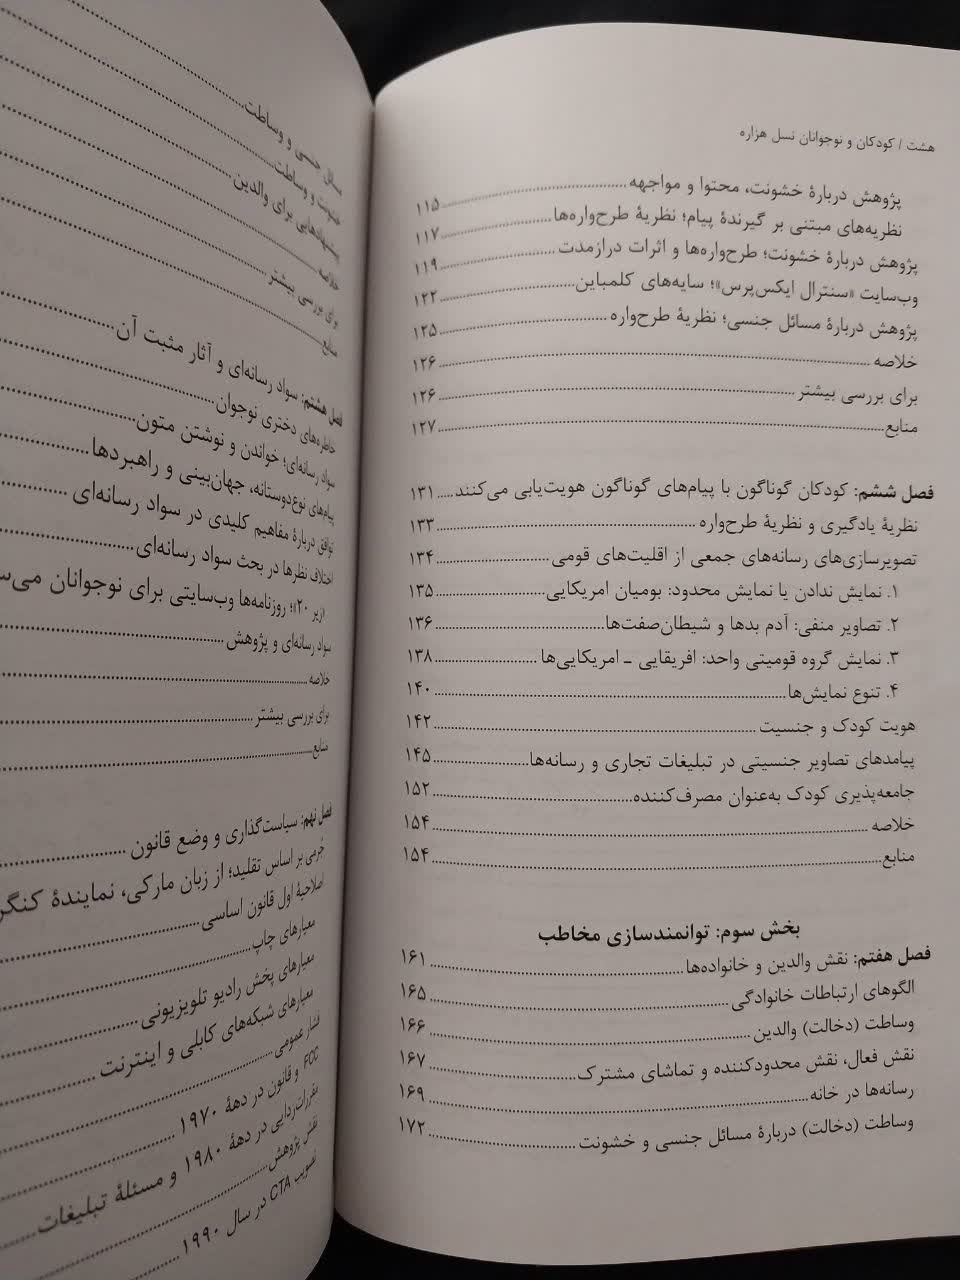 هشت / کودکان و نوجوانان نسل هزاره
پژوهش دربارهٔ خشونت، محتوا و مواجهه ۱۱۵
نظریه‌های مبتنی بر گیرندهٔ پیام؛ نظریهٔ طرح‌واره‌ها ۱۱۷
پژوهش دربارهٔ خشونت؛ طرح‌واره‌ها و اثرات درازمدت ۱۱۹
وب‌سایت «سنترال ایکس‌پرس»؛ سایه‌های کلمباین ۱۲۲
پژوهش دربارهٔ مسائل جنسی؛ نظریهٔ طرح‌واره ۱۲۵
خلاصه ۱۲۶
برای بررسی بیشتر ۱۲۶
منابع ۱۲۷
فصل ششم: کودکان گوناگون با پیام‌های گوناگون هویت‌یابی می‌کنند ۱۳۱
نظریهٔ یادگیری و نظریهٔ طرح‌واره ۱۳۳
تصویرسازی‌های رسانه‌های جمعی از اقلیت‌های قومی ۱۳۴
۱. نمایش ندادن یا نمایش محدود: بومیان امریکایی ۱۳۵
۲. تصاویر منفی: آدم بدها و شیطان‌صفت‌ها ۱۳۶
۳. نمایش گروه قومیتی واحد: افریقایی ـ امریکایی‌ها ۱۳۸
۴. تنوع نمایش‌ها ۱۴۰
هویت کودک و جنسیت ۱۴۲
پیامدهای تصاویر جنسیتی در تبلیغات تجاری و رسانه‌ها ۱۴۵
جامعه‌پذیری کودک به‌عنوان مصرف‌کننده ۱۵۲
خلاصه ۱۵۴
منابع ۱۵۴
بخش سوم: توانمندسازی مخاطب
فصل هفتم: نقش والدین و خانواده‌ها ۱۶۱
الگوهای ارتباطات خانوادگی ۱۶۵
وساطت (دخالت) والدین ۱۶۶
نقش فعال، نقش محدودکننده و تماشای مشترک ۱۶۷
رسانه‌ها در خانه ۱۶۹
وساطت (دخالت) دربارهٔ مسائل جنسی و خشونت ۱۷۲
مسائل جنسی و وساطت
خشونت و وساطت
پیشنهادهایی برای والدین
خلاصه
برای بررسی بیشتر
منابع
فصل هشتم: سواد رسانه‌ای و آثار مثبت آن
خاطره‌های دختری نوجوان
سواد رسانه‌ای؛ خواندن و نوشتن متون
پیام‌های نوع‌دوستانه، جهان‌بینی و راهبردها
توافق دربارهٔ مفاهیم کلیدی در سواد رسانه‌ای
اختلاف نظرها در بحث سواد رسانه‌ای
«زیر ۲۰»؛ روزنامه‌ها وب‌سایتی برای نوجوانان
سواد رسانه‌ای و پژوهش
خلاصه
برای بررسی بیشتر
منابع
فصل نهم: سیاست‌گذاری و وضع قانون
جُرمی بر اساس تقلید؛ از زبان مارکی، نمایندهٔ
اصلاحیهٔ اول قانون اساسی
معیارهای چاپ
معیارهای پخش رادیو تلویزیونی
معیارهای شبکه‌های کابلی و اینترنت
فشار عمومی
FCC و قانون در دههٔ ۱۹۷۰
مقررات‌زدایی در دههٔ ۱۹۸۰ و مسئلهٔ تبلیغات
نقش پژوهش
تصویب CTA در سال ۱۹۹۰